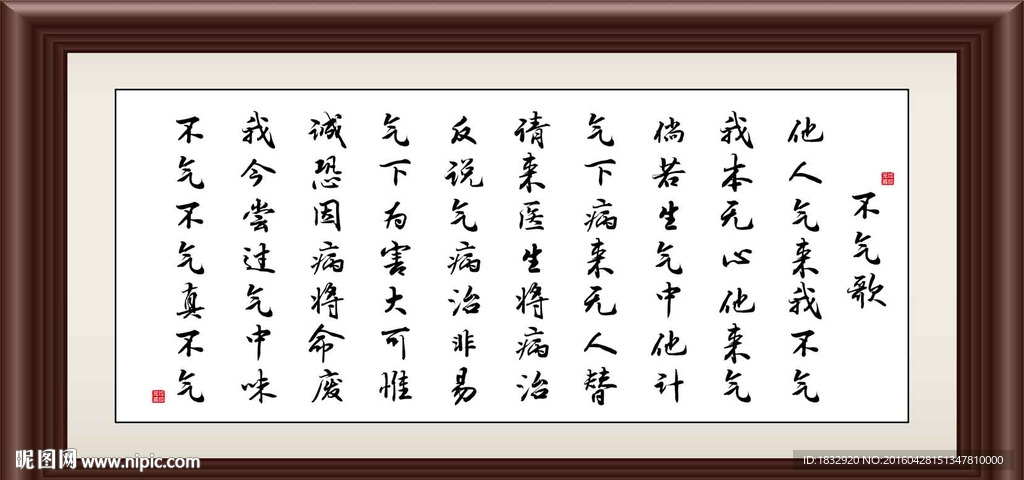 不气歌
他人气来我不气
我本无心他来气
倘若生气中他计
气下病来无人替
请来医生将病治
反说气病治非易
气下为害大可惟
诚恐因病将命废
我今尝过气中味
不气不气真不气
昵图网 www.nipic.com
ID:1832920 NO:20160428151347810000